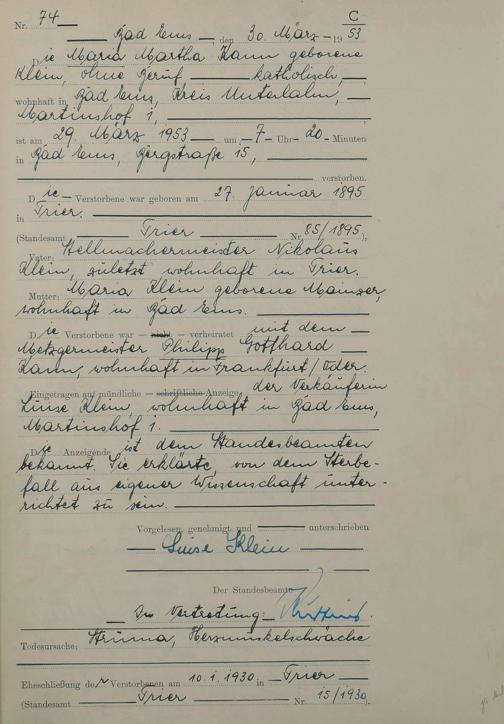 C
Nr. 74
Bad Ems, den 30. März 1953
Die Maria Martha Kann geborene
Klein, ohne Beruf katholisch,
wohnhaft in Bad Ems, Kreis Unterlahn,
Martinshof 1,
ist am 29. März 1953 um 7 Uhr 20 Minuten
in Bad Ems, Bergstraße 15,
verstorben.
Die Verstorbene war geboren am 27. Januar 1895
in Trier.
(Standesamt Trier Nr. 85/1895),
Vater: Stellmachermeister Nikolaus
Klein, zuletzt wohnhaft in Trier.
Mutter: Maria Klein geborene Mainzer,
wohnhaft in Bad Ems.
Die Verstorbene war – nicht – verheiratet mit dem
Metzgermeister Philipp Gotthard
Kann, wohnhaft in Frankfurt/Oder.
Eingetragen auf mündliche – schriftliche Anzeige der Verkäuferin
Luise Klein, wohnhaft in Bad Ems,
Martinshof 1.
Die Anzeigende ist dem Standesbeamten
bekannt. Sie erklärte, von dem Sterbe-
fall aus eigener Wissenschaft unter-
richtet zu sein.
Vorgelesen, genehmigt und unterschrieben
Luise Klein
Der Standesbeamte
In Vertretung:
Todesursache: Struma, Herzmuskelschwäche
Eheschließung der Verstorbenen am 10.1.1930 in Trier
(Standesamt Trier Nr. 15/1930).